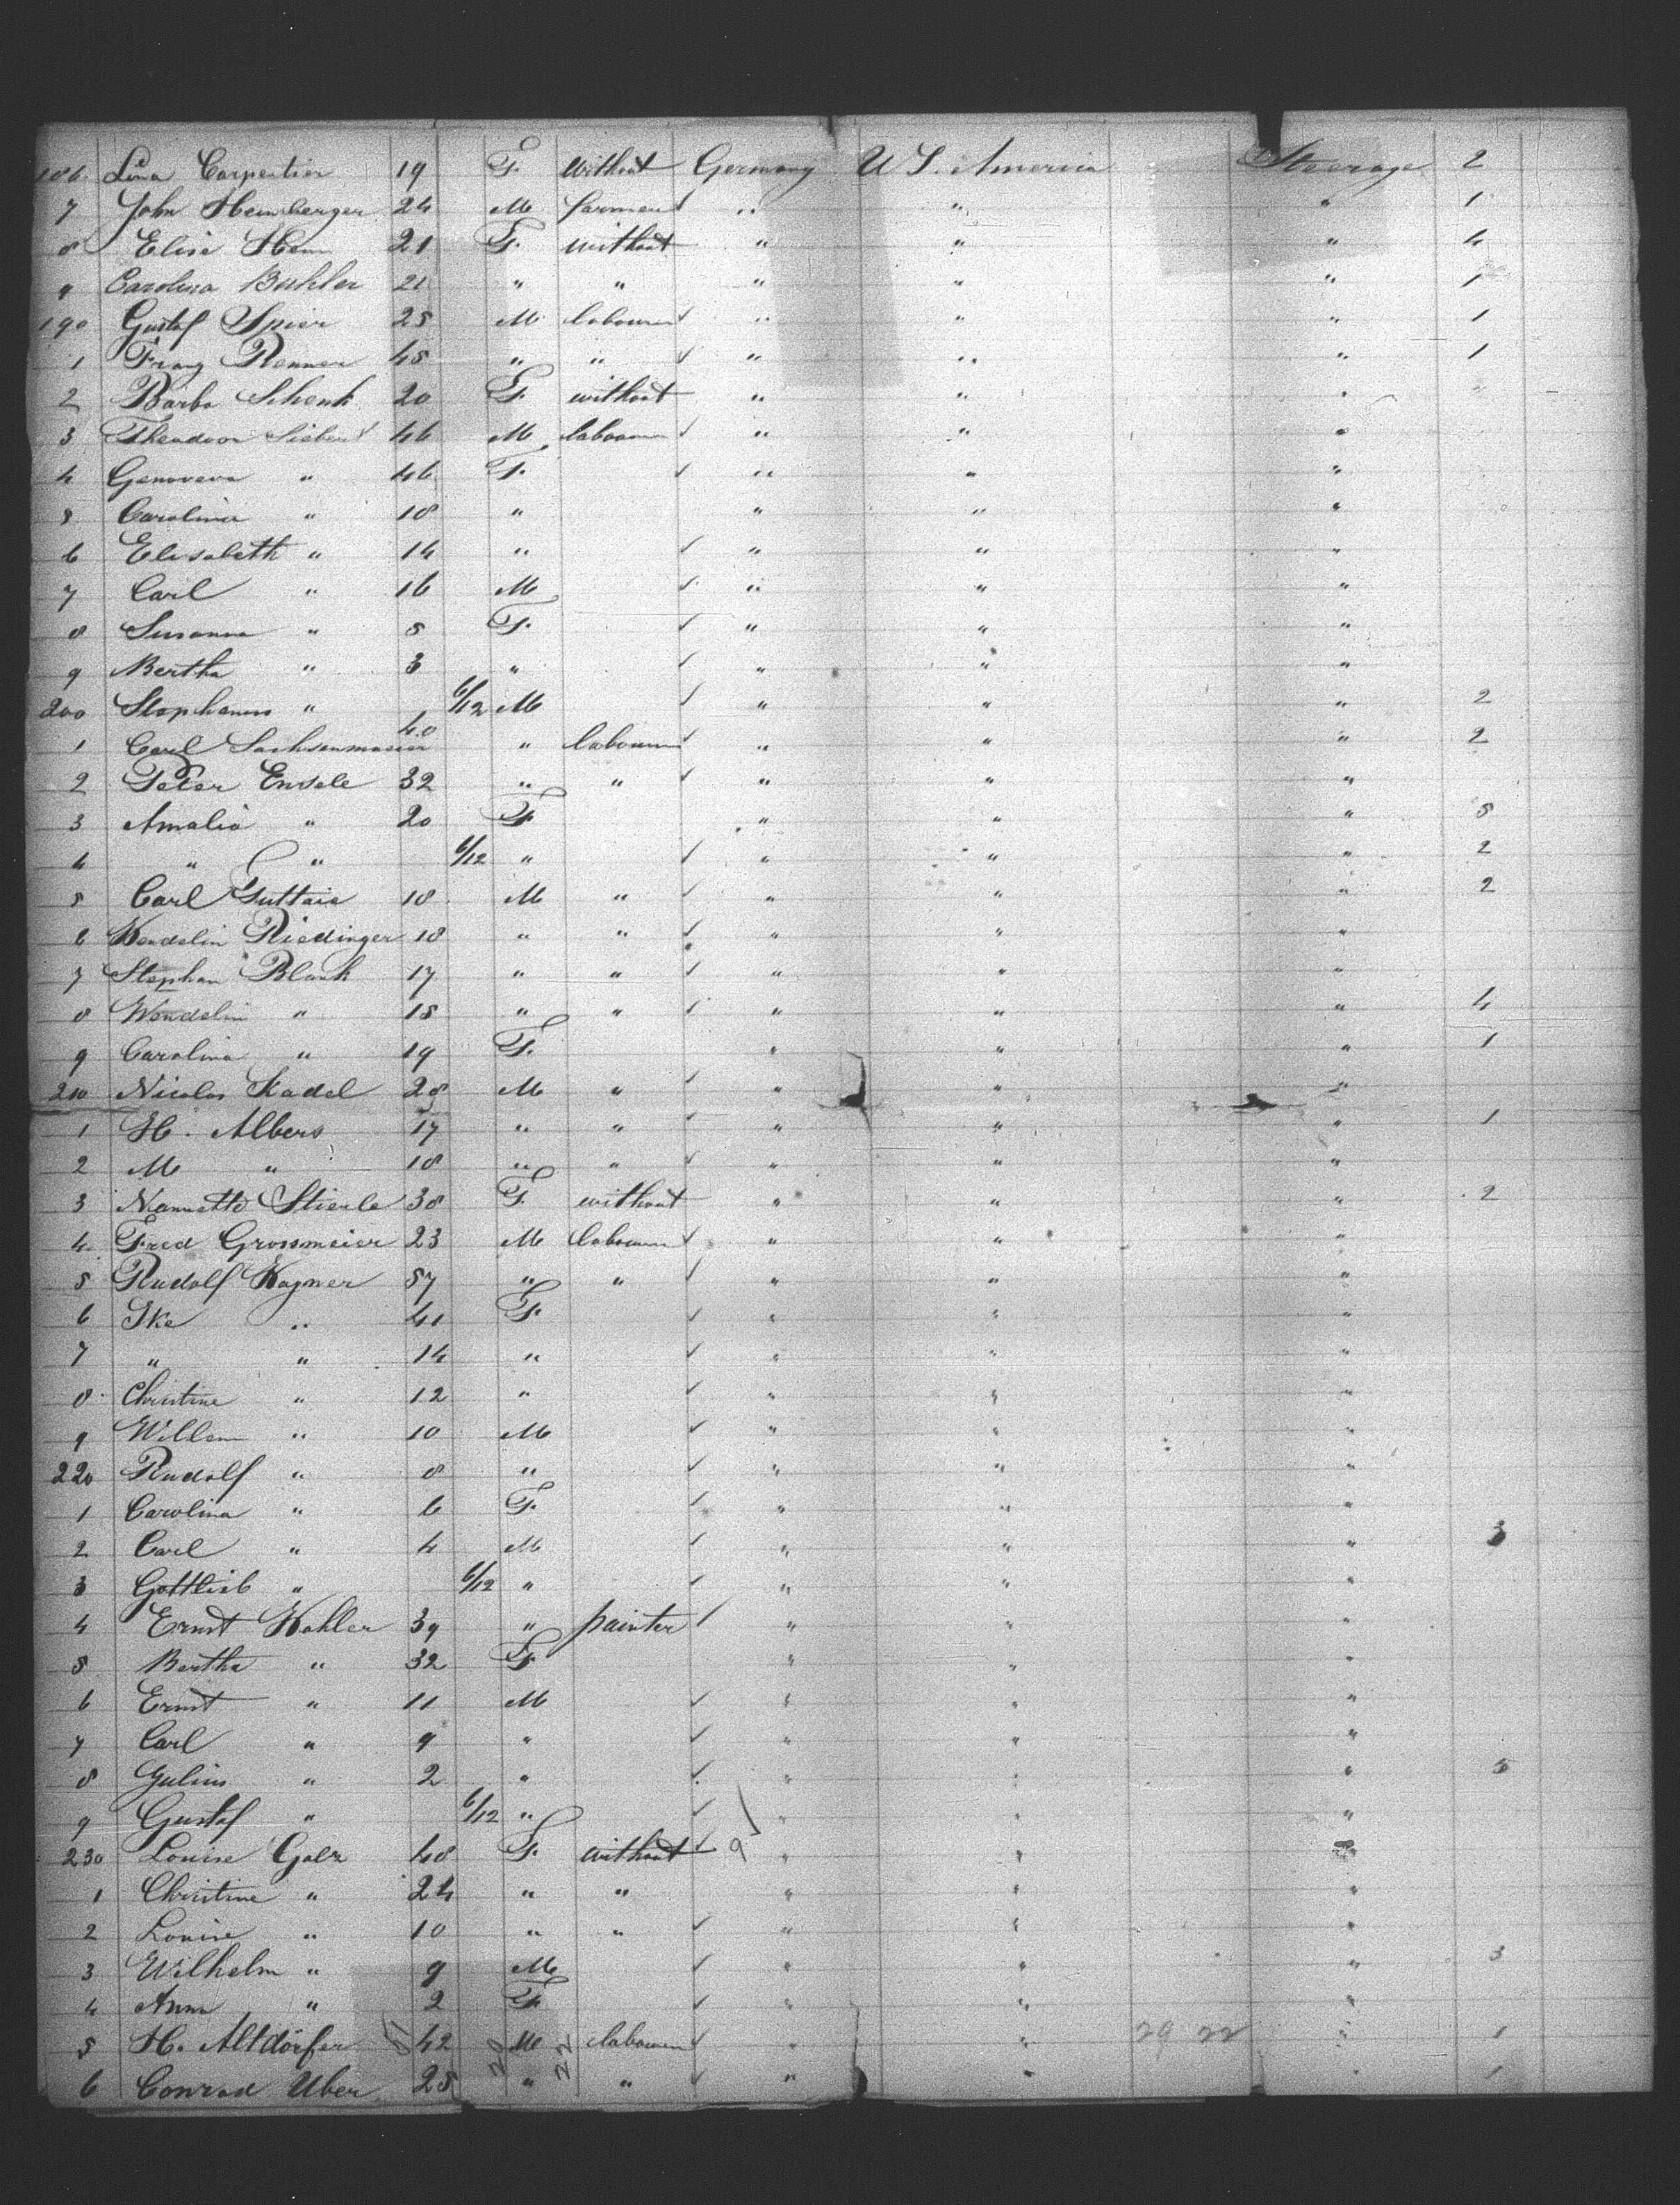 186. Lina Carpentier 19 F. without Germany U S. America Steerage 2
7 John Hemberger 24 M farmer " " " 1
8 Elise Hem 21 F. without " " " 4
9 Carolina Buhler 21 " " " " " 1
190 Gustaf Spier 25 M labourer " " " 1
1 Franz Renner 45 " " " " " 1
2 Barba Schenk 20 F. without " " "
3 Theodoor Siebert 46 M labourer " " "
4 Genoveva " 46 F. " " "
5 Carolina " 18 " " " "
6 Elisabeth " 14 " " " "
7 Carl " 16 M " " "
8 Susanna " 5 F. " " "
9 Bertha " 3 " " " "
200 Stephanus " 6/12 M " " " 2
1 Carl Sachsenmaier 40 " labourer " " " 2
2 Peter Ensele 32 " " " " "
3 Amalia " 20 F " " " 5
4 " " 6/12 " " " " 2
5 Carl Guttaie 18 M " " " " 2
6 Wendelin Riedinger 18 " " " " "
7 Stephan Blank 17 " " " " "
8 Wendelin " 15 " " " " " 4
9 Carolina " 19 F. " " " 1
210 Nicolas Kadel 28 M " " " "
1 H. Albers 17 " " " " " 1
2 M " 18 " " " " "
3 Nannette Stierle 38 F. without " " " 2
4 Fred Grossmeier 23 M labourer " " "
5 Rudolf Wagner 57 " " " " "
6 Ike " 41 F. " " "
7 " " 14 " " " "
8 Christine " 12 " " " "
9 Willem " 10 M " " "
220 Rudolf " 8 " " " "
1 Carolina " 6 F. " " "
2 Carl " 4 M " " " 3
3 Gottlieb " 6/12 " " " "
4 Ernst Kohler 39 " painter " " "
5 Bertha " 32 F " " "
6 Ernst " 11 M " " "
7 Carl " 9 " " " "
8 Julius " 2 " " " " 5
9 Gustaf " 6/12 " " " "
230 Louise Golz 48 F. without 9 " " "
1 Christine " 24 " " " " "
2 Louise " 10 " " " " "
3 Wilhelm " 9 M " " " 3
4 Anna " 2 F. " " "
5 H. Altdörfer 42 M labourer " " 29 22 " 1
6 Conrad Uber 25 " " " " " 1